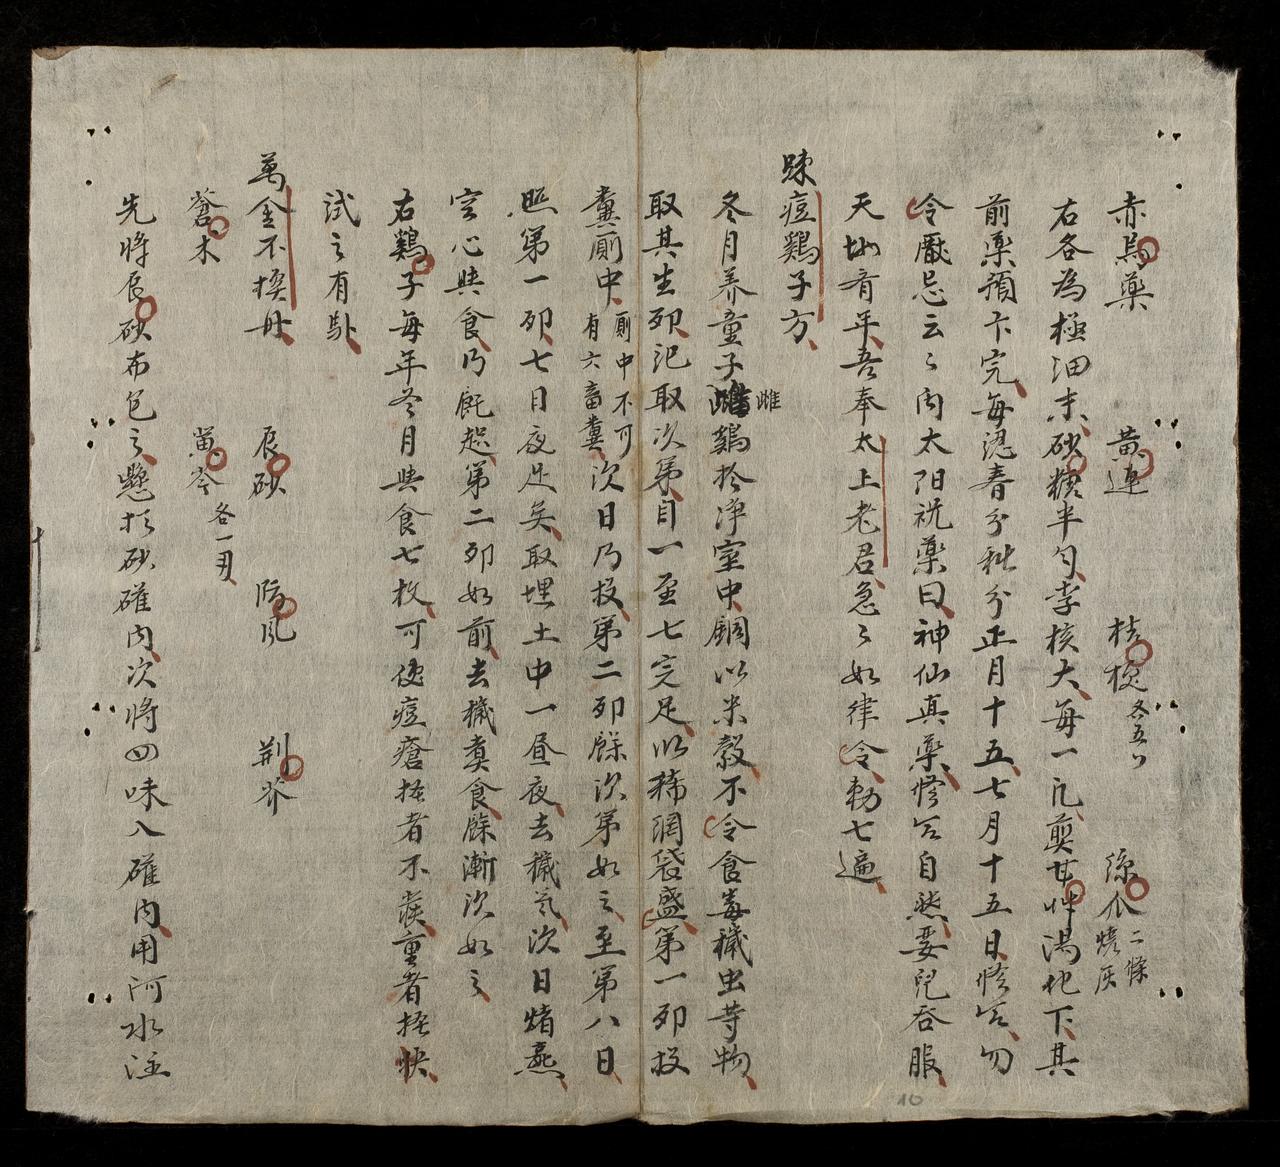 赤烏藥 黃連 桔梗各五分 絲瓜二條燒灰
右各為極細末砂糖半勻李核大每一凡煎甘艸湯化下其
前藥預卞完每逢春分秋分正月十五七月十五日修合勿
令厭忌云〻向太阳祝藥曰神仙真藥修合自然嬰兒吞服
天地齊年吾奉太上老君急〻如律令勅七遍
踈痘鷄子方
冬月养童子雌鷄於净室中飼以米穀不令食毒穢虫等物
雌
取其生卵記取次第自一至七完足以稀綱袋盛第一卵投
糞厠中厠中不可有六畜糞次日乃投第二卵餘次第如之至第八日
照第一卵七日夜足矣取埋土中一昼夜去穢氣次日焟燕
空心與食乃既起第二卵如前去穢糞食餘漸次如之
右鷄子每年冬月與食七枚可使痘瘡搔者不痰重者搔快
試之有驗
萬金不換丹 辰砂 防风 荆芥
蒼朮 黃芩各一刄
先將辰砂布包之懸於砂礶内次將四味入礶内用河水注